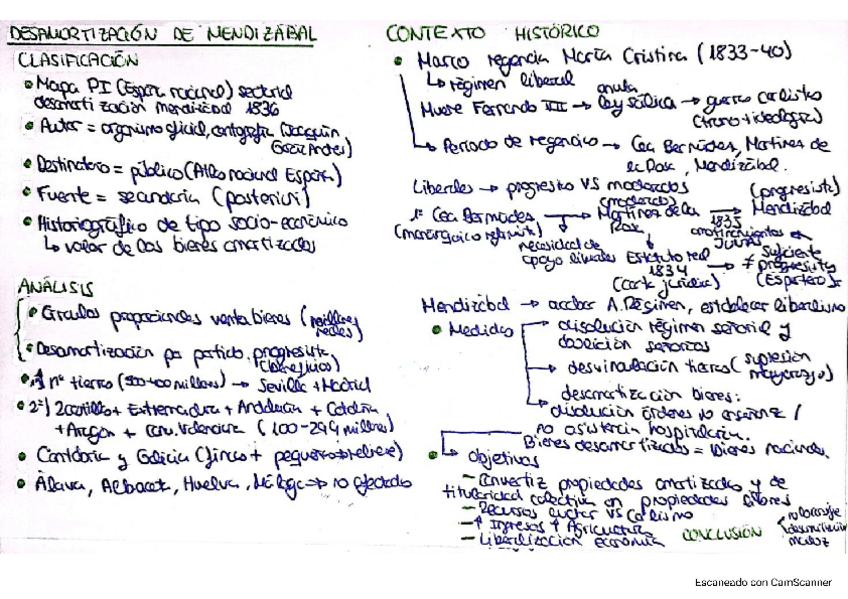 DESAMORTIZACIÓN DE MENDIZÁBAL
CLASIFICACIÓN
• Mapa PI (España nacional) sectorial
desamortización mendizábal 1836
• Autor = organismo oficial, cartografía (Joaquín
• Destinatario = público (Atlas nacional España)
• Fuente = secundaria (posteriori)
• Historiográfico de tipo socio-económico
↳ valor de los bienes amortizados
ANÁLISIS
• Círculos proporcionales venta bienes (millones
reales)
• Desamortización por partido progresista
• 1º nº tierras (300-400 millones) → Sevilla + Madrid
• 2º) 2castillas + Extremadura + Andalucía + Cataluña
+ Aragón + Com. Valenciana (100-299 millones)
• Cantabria y Galicia (fincas + pequeñas + relieve)
• Álava, Albacete, Huelva, Málaga → no afectado
CONTEXTO HISTÓRICO
• Marco regencia María Cristina (1833-40)
↳ régimen liberal
Muere Fernando VII → anula ley sálica → guerra carlista
(trono + ideología)
↳ Periodo de regencia → Cea Bermúdez, Martínez de
la Rosa, Mendizábal.
Liberales → progresista VS moderados
1º Cea Bermúdez → Martínez de la Rosa (moderado) → 1835 Mendizábal (progresista)
necesidad de
apoyo liberales
Estatuto real
1834
(carta jurídica)
JUNTAS
≠ suficiente
progresistas
(Espartero)
Mendizábal → acabar A.Régimen, establecer liberalismo
• Medidas
disolución régimen señorial y
abolición señoríos
→ desvinculación tierras (supresión
mayorazgo)
→ desamortización bienes:
disolución órdenes no enseñanza /
no asistencia hospitalaria.
Bienes desamortizados = Bienes nacionales.
• Objetivos
- Convertir propiedades amortizadas y de
titularidad colectiva en propiedades libres
- Recursos luchar VS Carlismo
- ↑ Ingresos ↑ Agricultura
- Liberalización economía
CONCLUSIÓN
desamortización
madoz
Escaneado con CamScanner